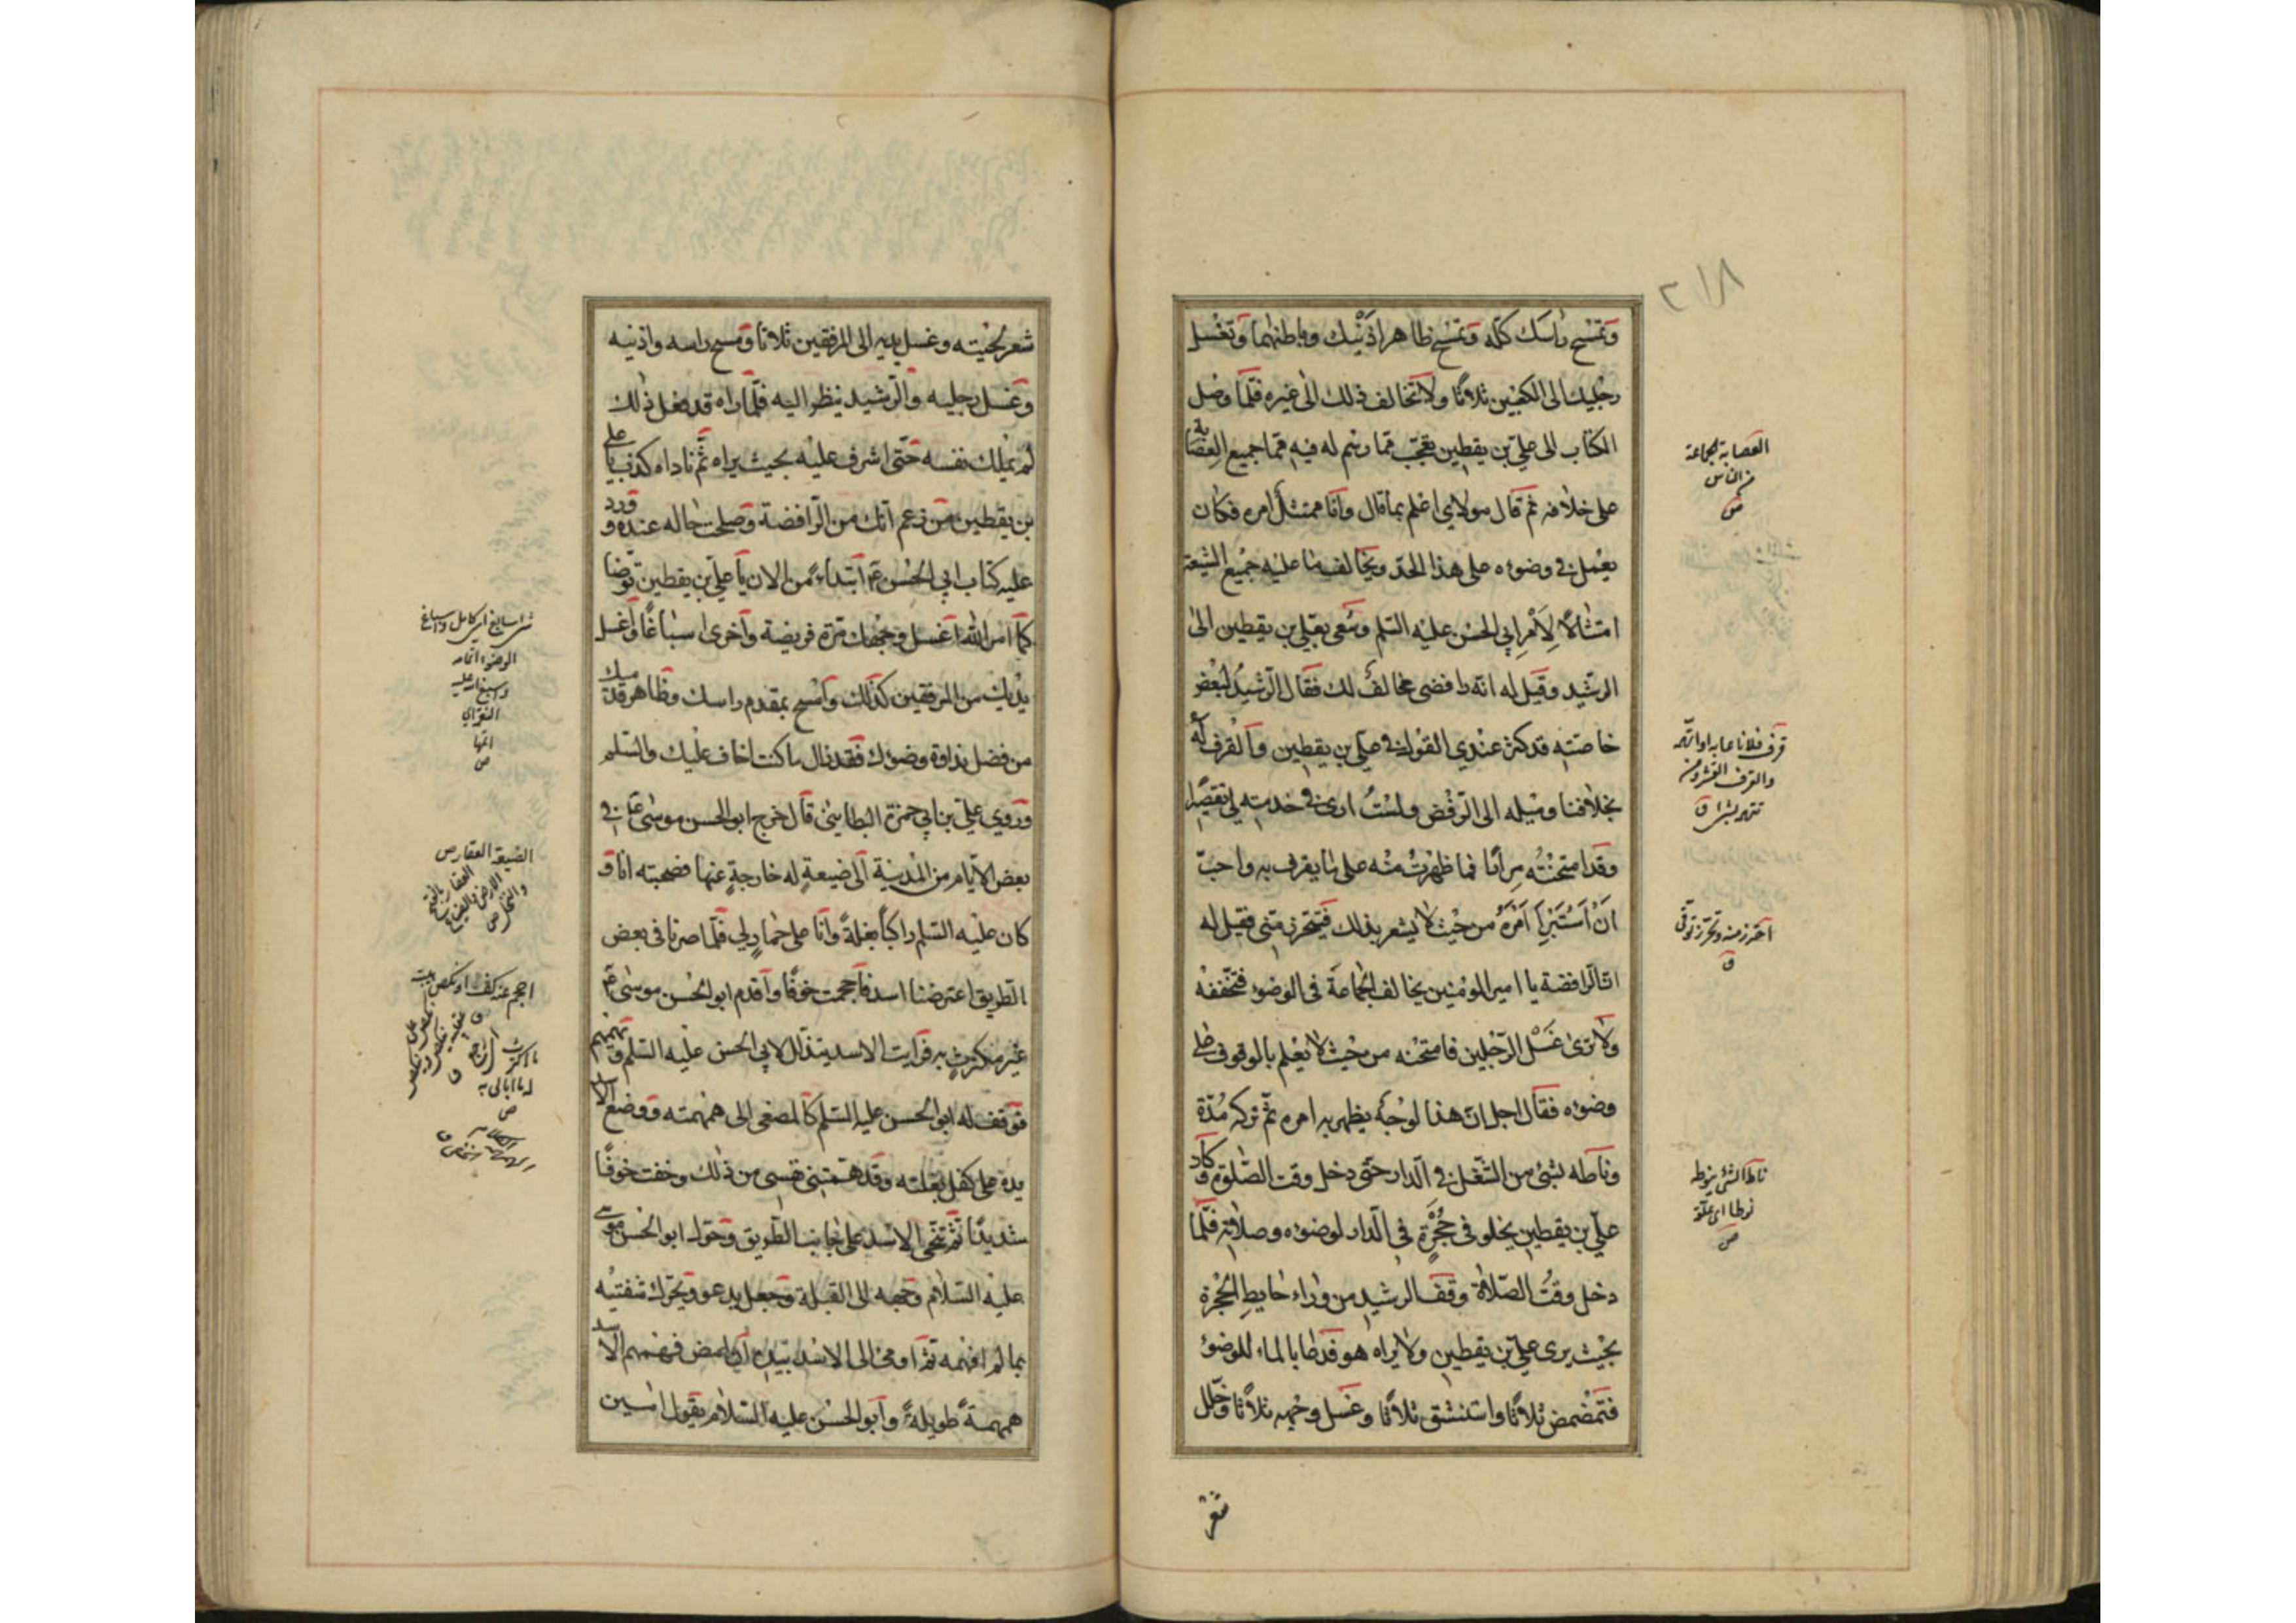 ٢١٨
وتمسح راسك كله وتمسح ظاهر اذنيك وباطنهما وتغسل
رجليك الى الكعبين ثلاثا ولا تخالف ذلك الى غيره فلما وصل
الكتاب الى علي بن يقطين تعجب مما رسم له فيه مما جميع العصابة
على خلافه ثم قال مولاي اعلم بما قال وانا ممتثل امره فكان
يعمل في وضوءه على هذا الحد ويخالف ما عليه جميع الشيعة
امتثالا لامر ابي الحسن عليه السلم وسعى بعلي بن يقطين الى
الرشيد وقيل له انه رافضي مخالف لك فقال الرشيد لبعض
خاصته قد كثر عندي القول في علي بن يقطين والقرف له
بخلافنا وميله الى الرفض ولست ارى في خدمته لي تقصيرا
وقد امتحنته مرارا فما ظهرت منه على ما يقرف به واحب
ان استبرأ امره من حيث لا يشعر بذلك فيتحرز مني فقيل له
ان الرافضة يا امير المؤمنين يخالف الجماعة في الوضوء فتخففه
ولا ترى غسل الرجلين فامتحنه من حيث لا يعلم بالوقوف على
وضوءه فقال اجل ان هذا لوجه يظهر به امره ثم تركه مدة
وناطه بشئ من الشغل في الدار حتى دخل وقت الصلوة وكان
علي بن يقطين يخلو في حجرة في الدار لوضوءه وصلاته فلما
دخل وقت الصلاة وقف الرشيد من وراء حايط الحجرة
بحيث يرى علي بن يقطين ولا يراه هو فدعا بالماء للوضوء
فتمضمض ثلاثا واستنشق ثلاثا وغسل وجهه ثلاثا وخلل
شعر
العصابة الجماعة
من الناس
ص
قرف فلانا عابه او اتهمه
ق
احترز منه وتحرز توقى
ق
ناط الشئ ينوطه
نوطا اى علقه
ص
شعر لحيته وغسل يديه الى المرفقين ثلاثا ومسح راسه واذنيه
وغسل رجليه والرشيد ينظر اليه فلما راه قد فعل ذلك
لم يملك نفسه حتى اشرف عليه بحيث يراه ثم ناداه كذب يا علي
بن يقطين من زعم انك من الرافضة وصلحت حاله عنده وورد
عليه كتاب ابي الحسن ع ابتداء من الان يا علي بن يقطين توضا
كما امر الله اغسل وجهك مرة فريضة واخرى اسباغا واغسل
يديك من المرفقين كذلك وامسح بمقدم راسك وظاهر قدميك
من فضل نداوة وضوءك فقد زال ما كنت اخاف عليك والسلم
وروي علي بن ابي حمزة البطايني قال خرج ابو الحسن موسى ع في
بعض الايام من المدينة الى ضيعة له خارجة عنها فصحبته انا و
كان عليه السلم راكبا بغلة وانا على حمار لي فلما صرنا في بعض
الطريق اعترضنا اسد فاحجمت خوفا واقدم ابو الحسن موسى ع
غير مكترث به فرايت الاسد يتذلل لابي الحسن عليه السلم ويهمهم
فوقف له ابو الحسن عليه السلم كالمصغى الى همهمته ووضع الاسد
يده على كفل بغلته وقد همتني نفسي من ذلك وخفت خوفا
شديدا ثم تنحى الاسد على جانب الطريق وحول ابو الحسن موسى
عليه السلام وجهه الى القبلة وجعل يدعو ويحرك شفتيه
بما لم افهمه ثم اومى الى الاسد بيده ان امض فهمهم الاسد
همهمة طويلة وابو الحسن عليه السلام يقول امين
شئ سابغ اى كامل واسباغ
الوضوء اتمامه
اتمها
ص
الضيعة العقار ص
ما اكترث
له ما ابالى به
ص